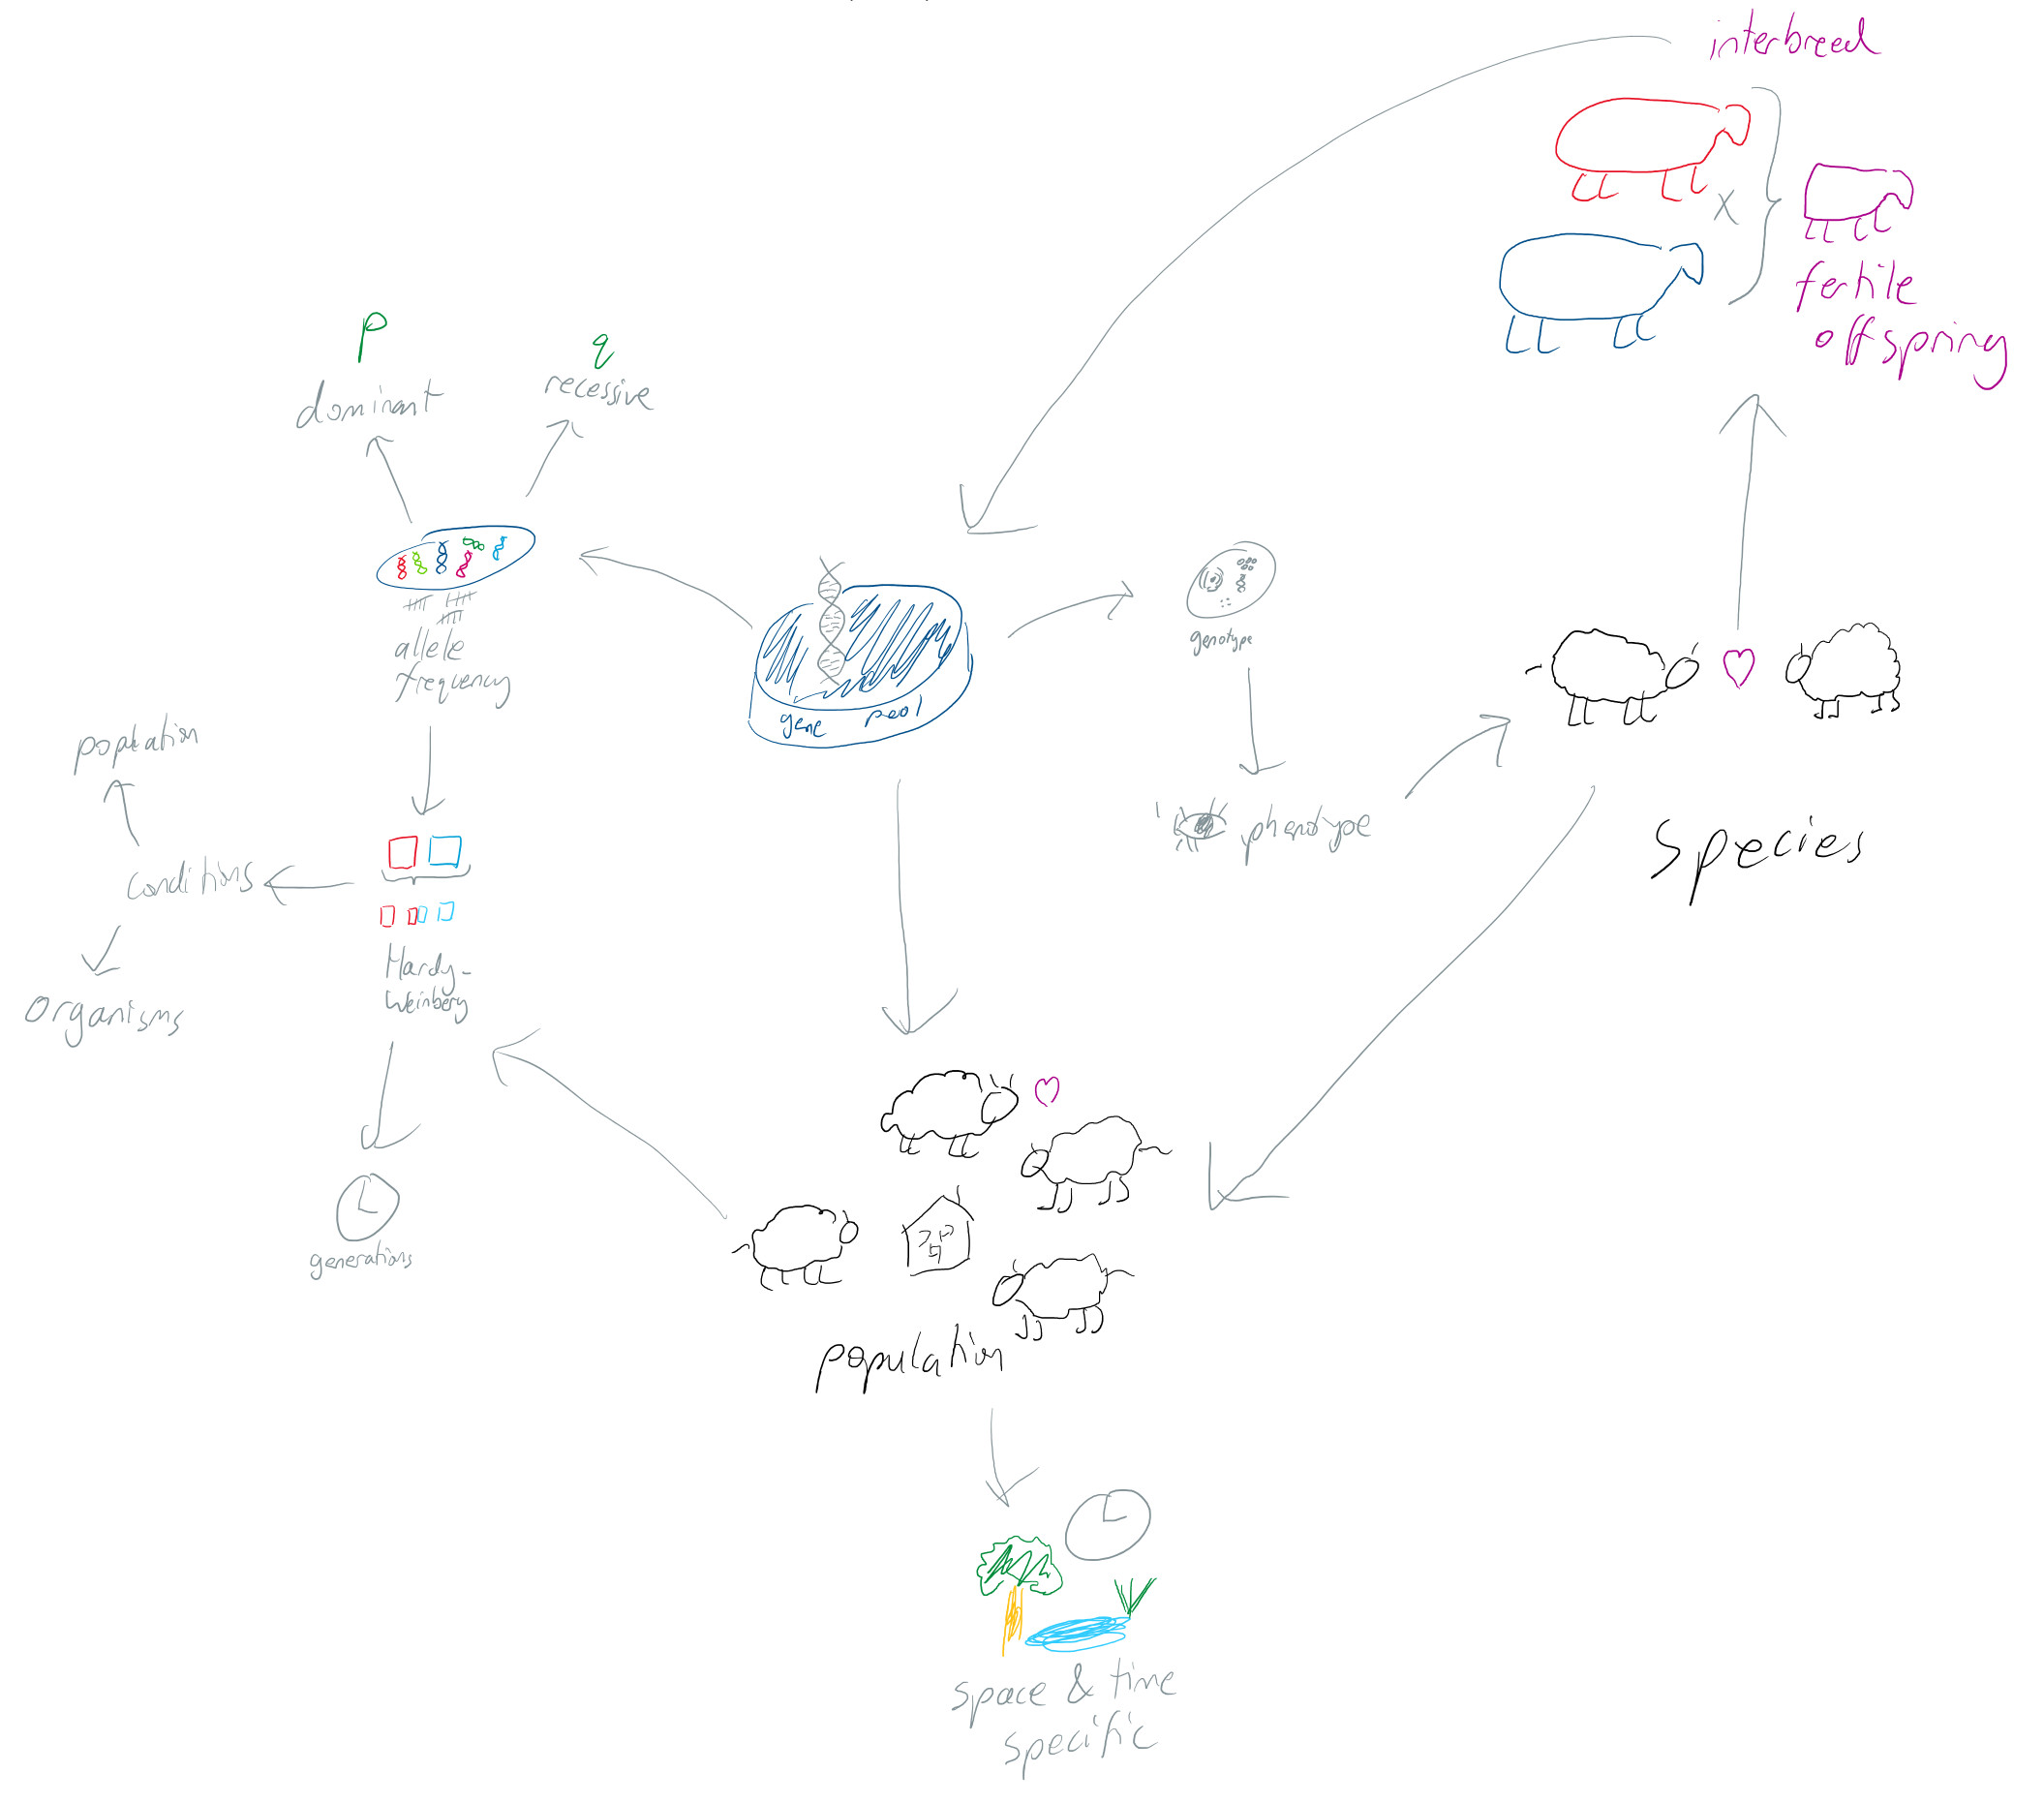 interbreed
fertile
offspring
p
q
dominant
recessive
allele
frequency
gene pool
genotype
phenotype
Species
population
conditions
organisms
Hardy-
Weinberg
generations
population
space & time
specific
X